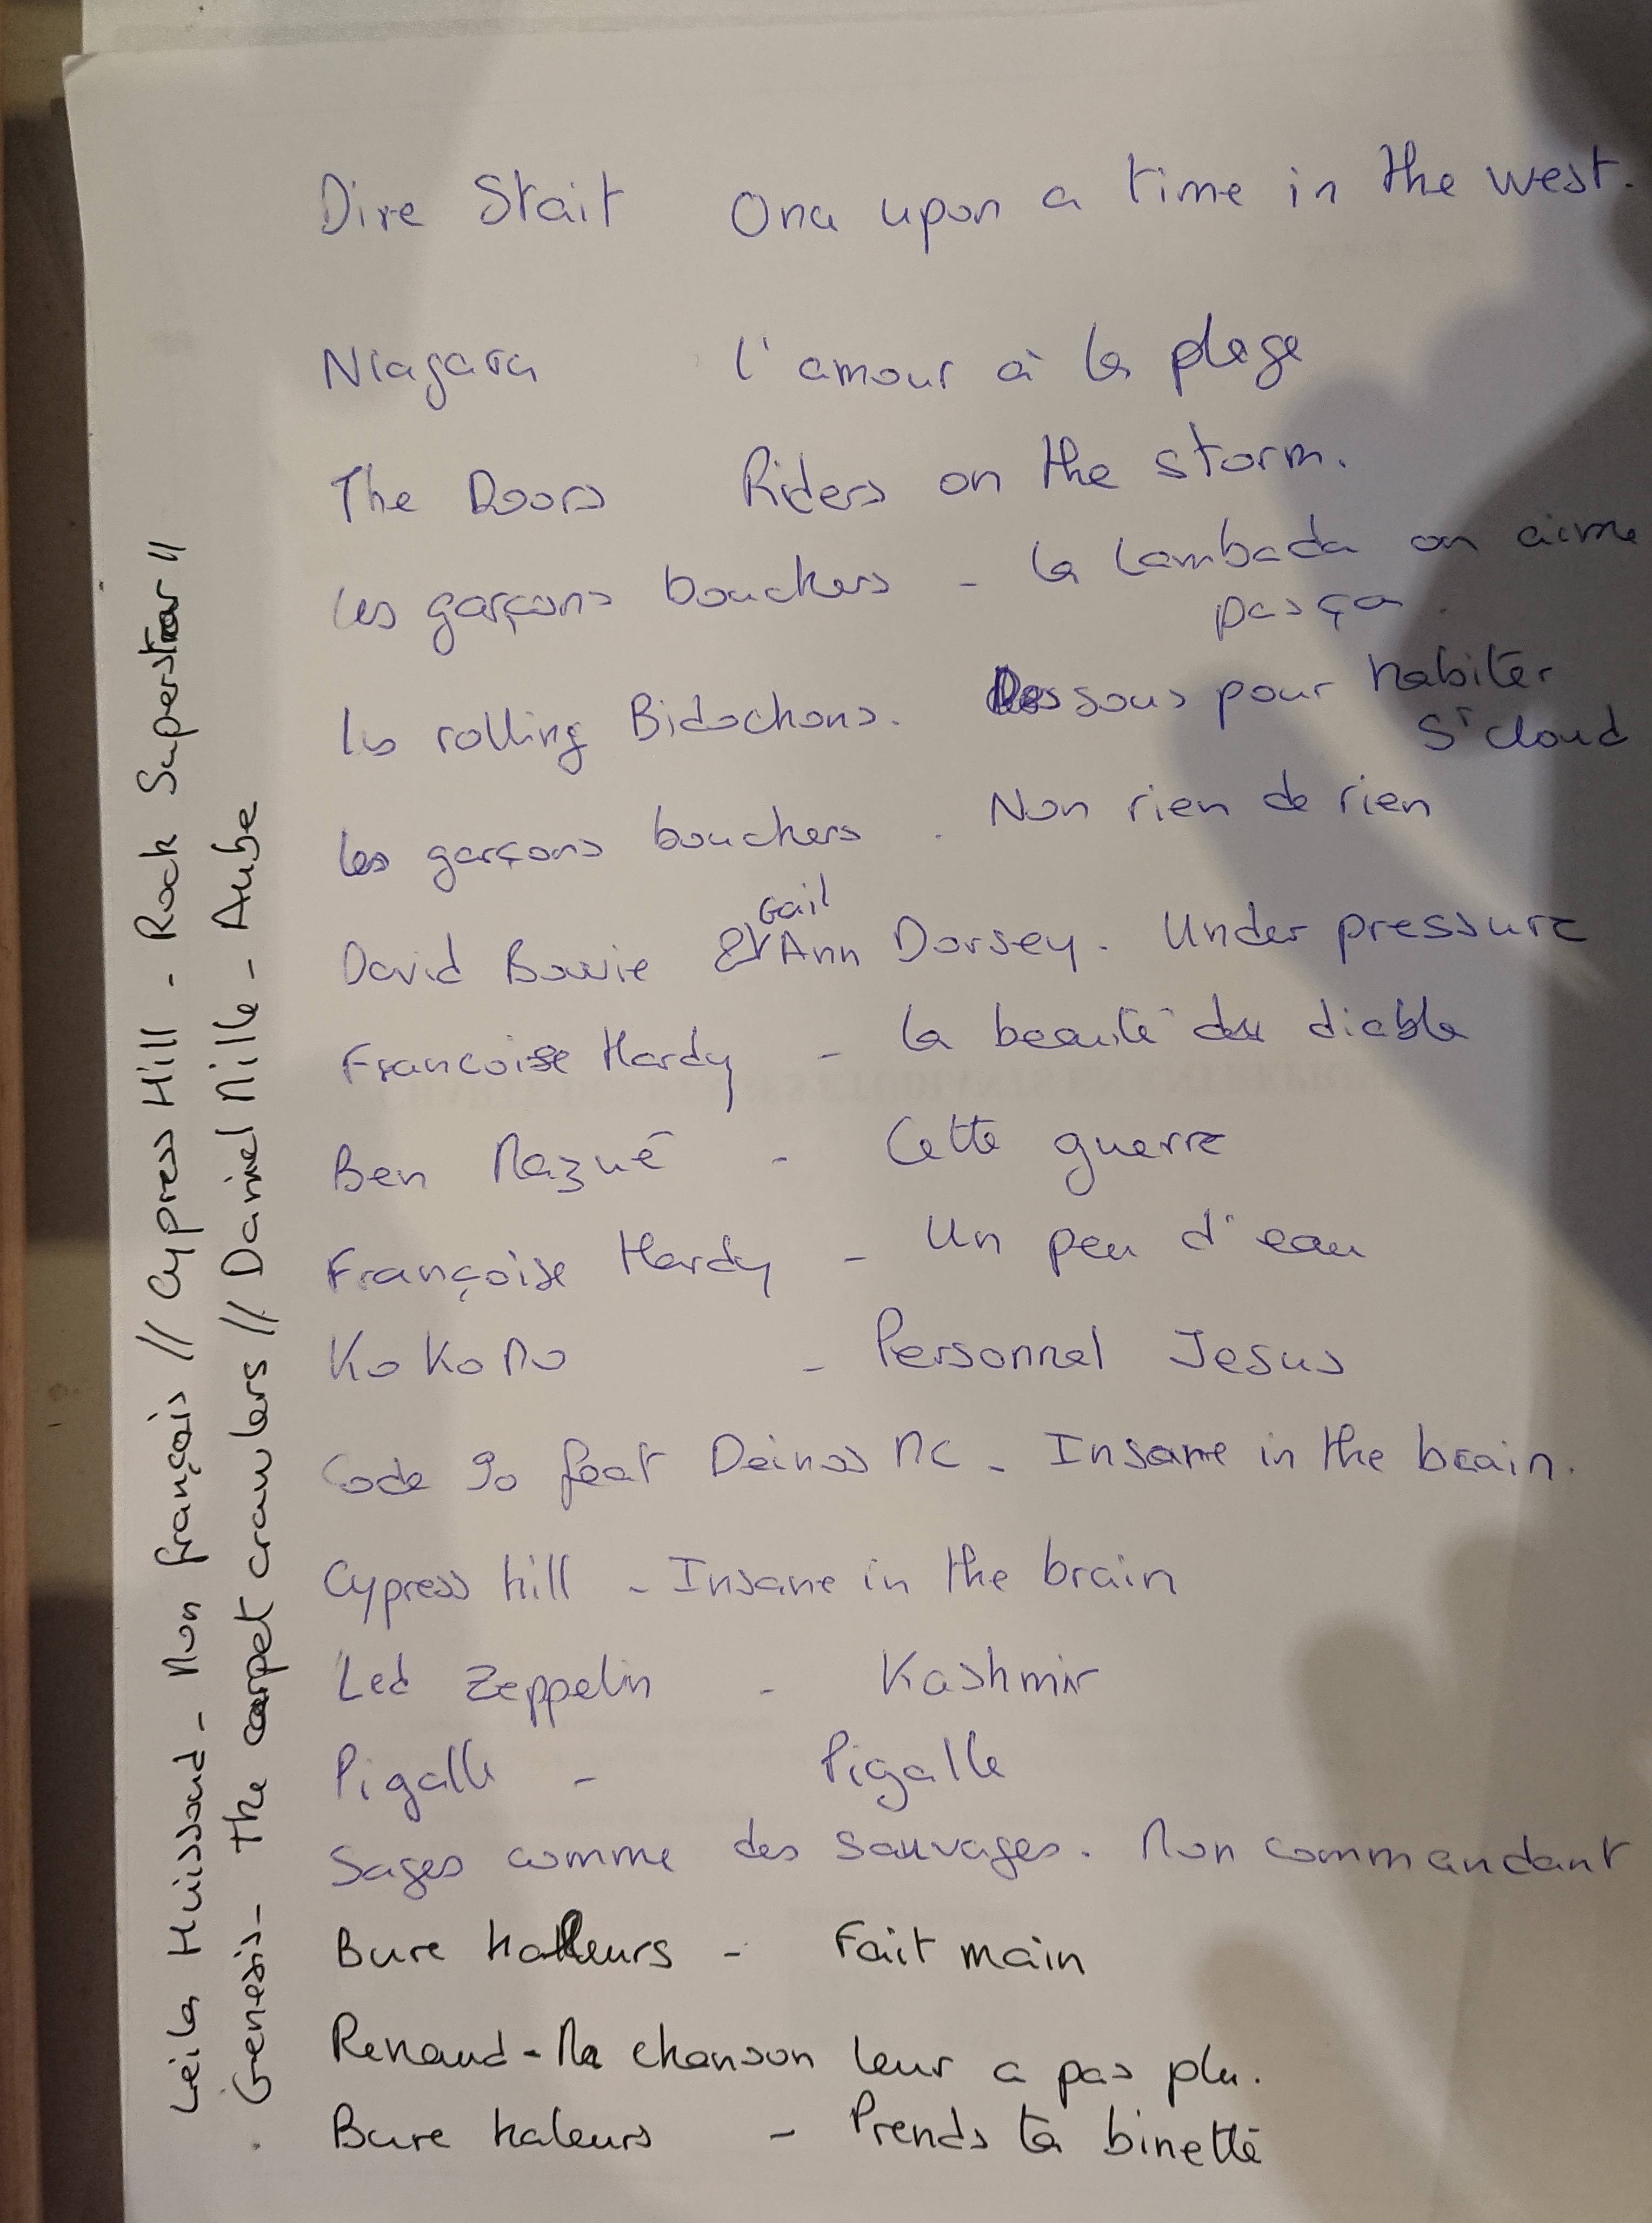 Dire Stait Ona upon a time in the west.
Niagara l'amour à la plage
The Doors Riders on the storm.
Les garçons bouchers - la Lambada on aime
pas ça.
Les rolling Bidochons. Des sous pour habiter
St cloud
Les garçons bouchers. Non rien de rien
Gail
David Bowie et Ann Dorsey. Under pressure
Francoise Hardy - la beauté du diable
Ben Mazué - Cette guerre
Françoise Hardy - Un peu d'eau
KoKoMo - Personnel Jesus
Code 90 feat Deinos MC - Insane in the brain.
Cypress hill - Insane in the brain
Led Zeppelin - Kashmir
Pigalle - Pigalle
Sages comme des sauvages. Mon commandant
Bure haleurs - Fait main
Renaud - Ma chanson leur a pas plu.
Bure haleurs - Prends ta binette
Leïla Huissoud - Mon français // Cypress Hill - Rock Superstar //
Genesis - The carpet crawlers // Daniel Mille - Aube